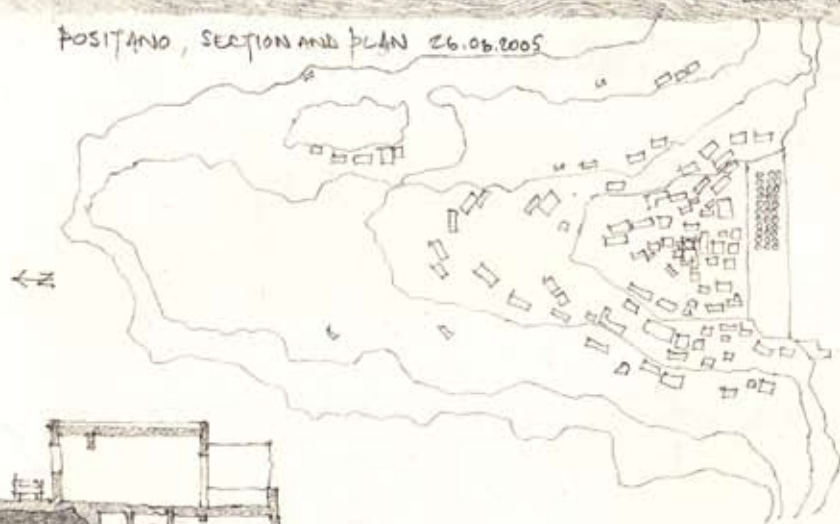 POSITANO, SECTION AND PLAN 26.08.2005
N